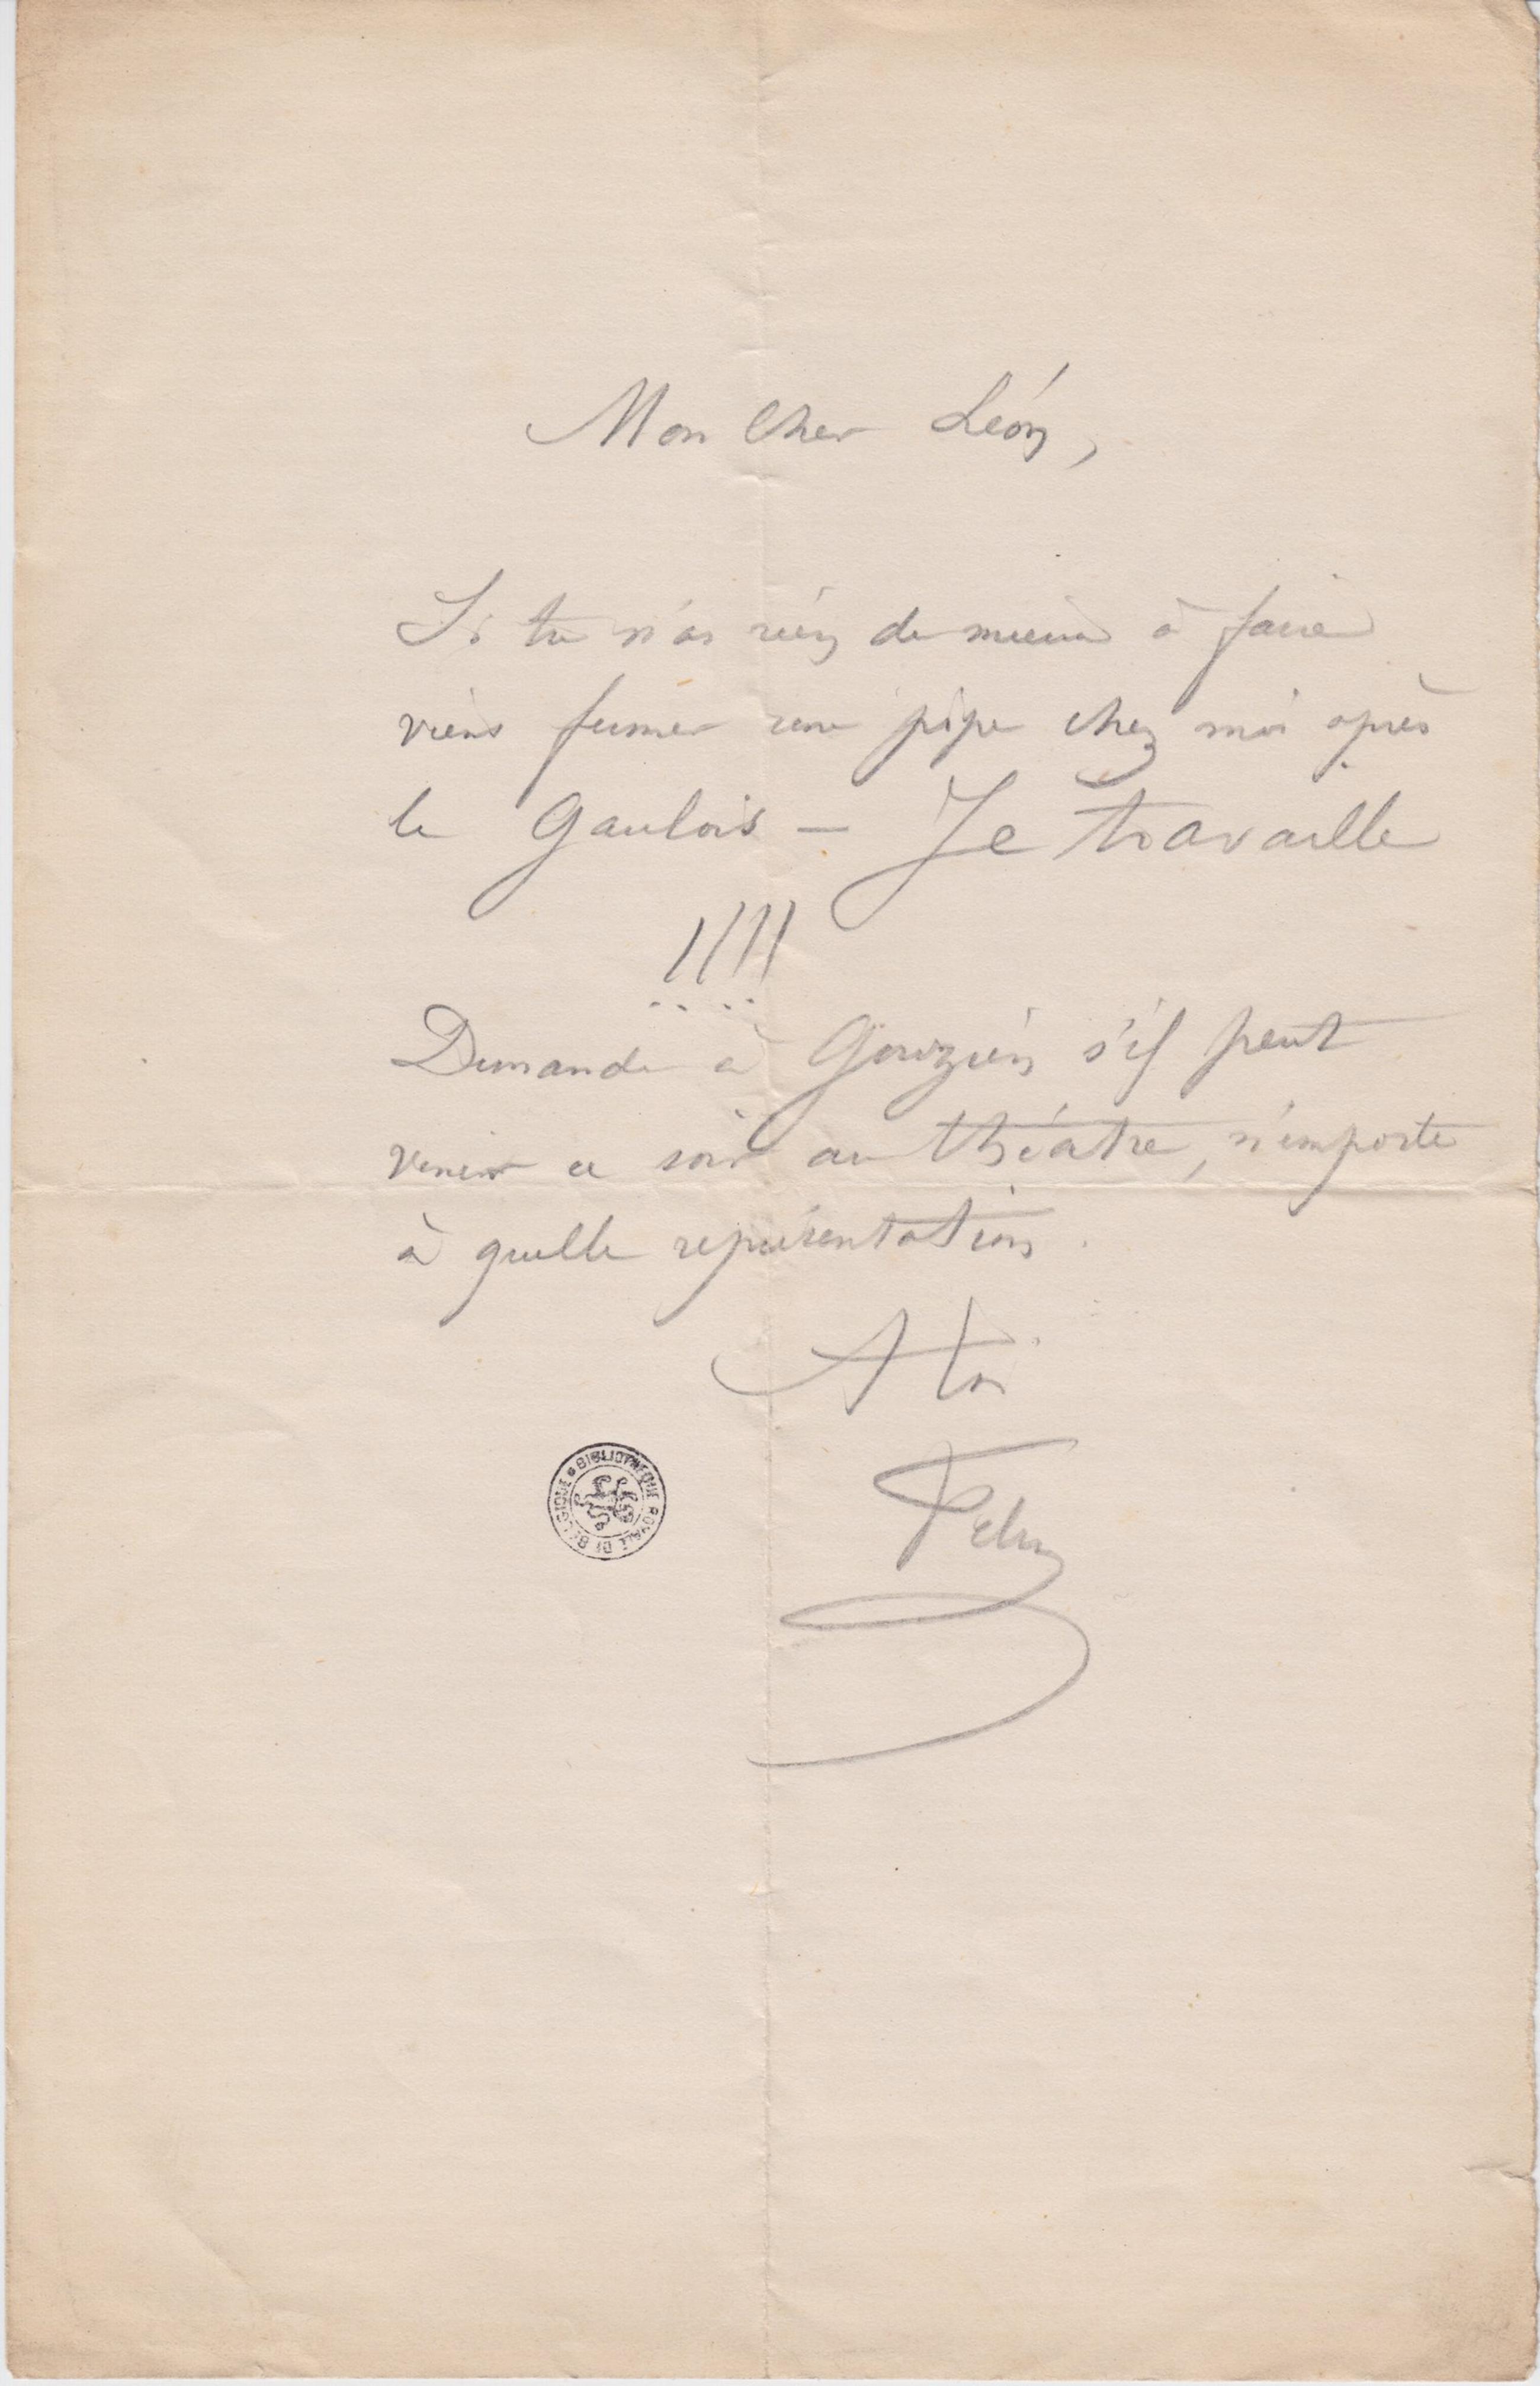 Mon Cher Léon,
Si tu n'as rien de mieux à faire
viens fumer une pipe chez moi après
le Gaulois — Je travaille
!!!!
Demande à Gouzien s'il peut
venir ce soir au théatre, n'importe
à quelle représentation.
A toi
Fély
BIBLIOTHEQUE ROYALE DE BELGIQUE